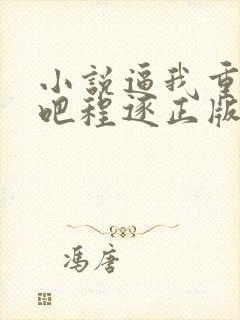 小説逼我重
吧程逐正版
馮唐